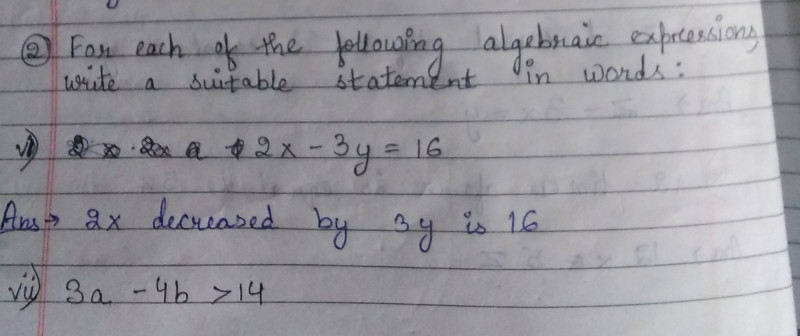 ② For each of the following algebraic expressions,
write a suitable statement in words:
vi) 2x - 3y = 16
Ans → 2x decreased by 3y is 16
vii) 3a - 4b > 14